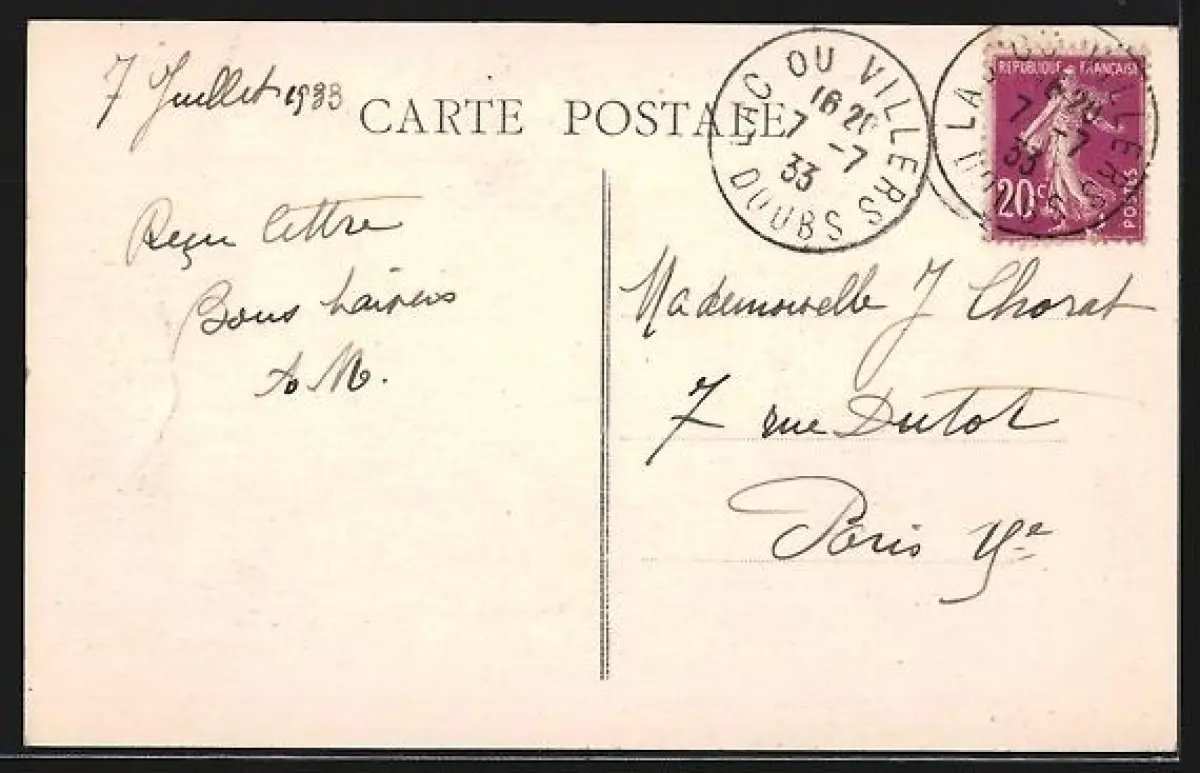 7 Juillet 1933
CARTE POSTALE
LAC OU VILLERS
16 20
7 -7
33
DOUBS
REPUBLIQUE FRANÇAISE
20c
POSTES
Reçu lettre
Bons baisers
M.
Mademoiselle J Chorat
7 rue Dutot
Paris